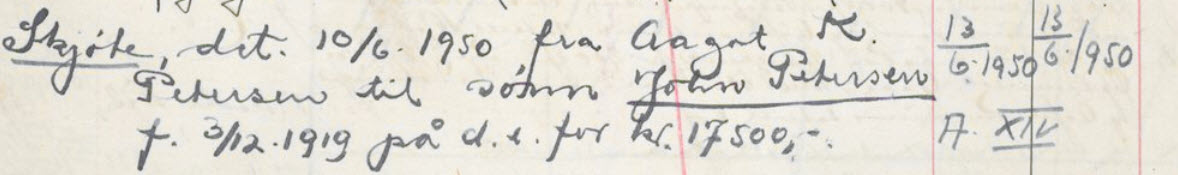 Skjøte, dat. 10/6. 1950 fra Aagot K. 13/6.1950 13/6./1950
Petersen til sønn John Petersen
f. 3/12.1919 på d.e. for kr. 17500,-. A. XIV